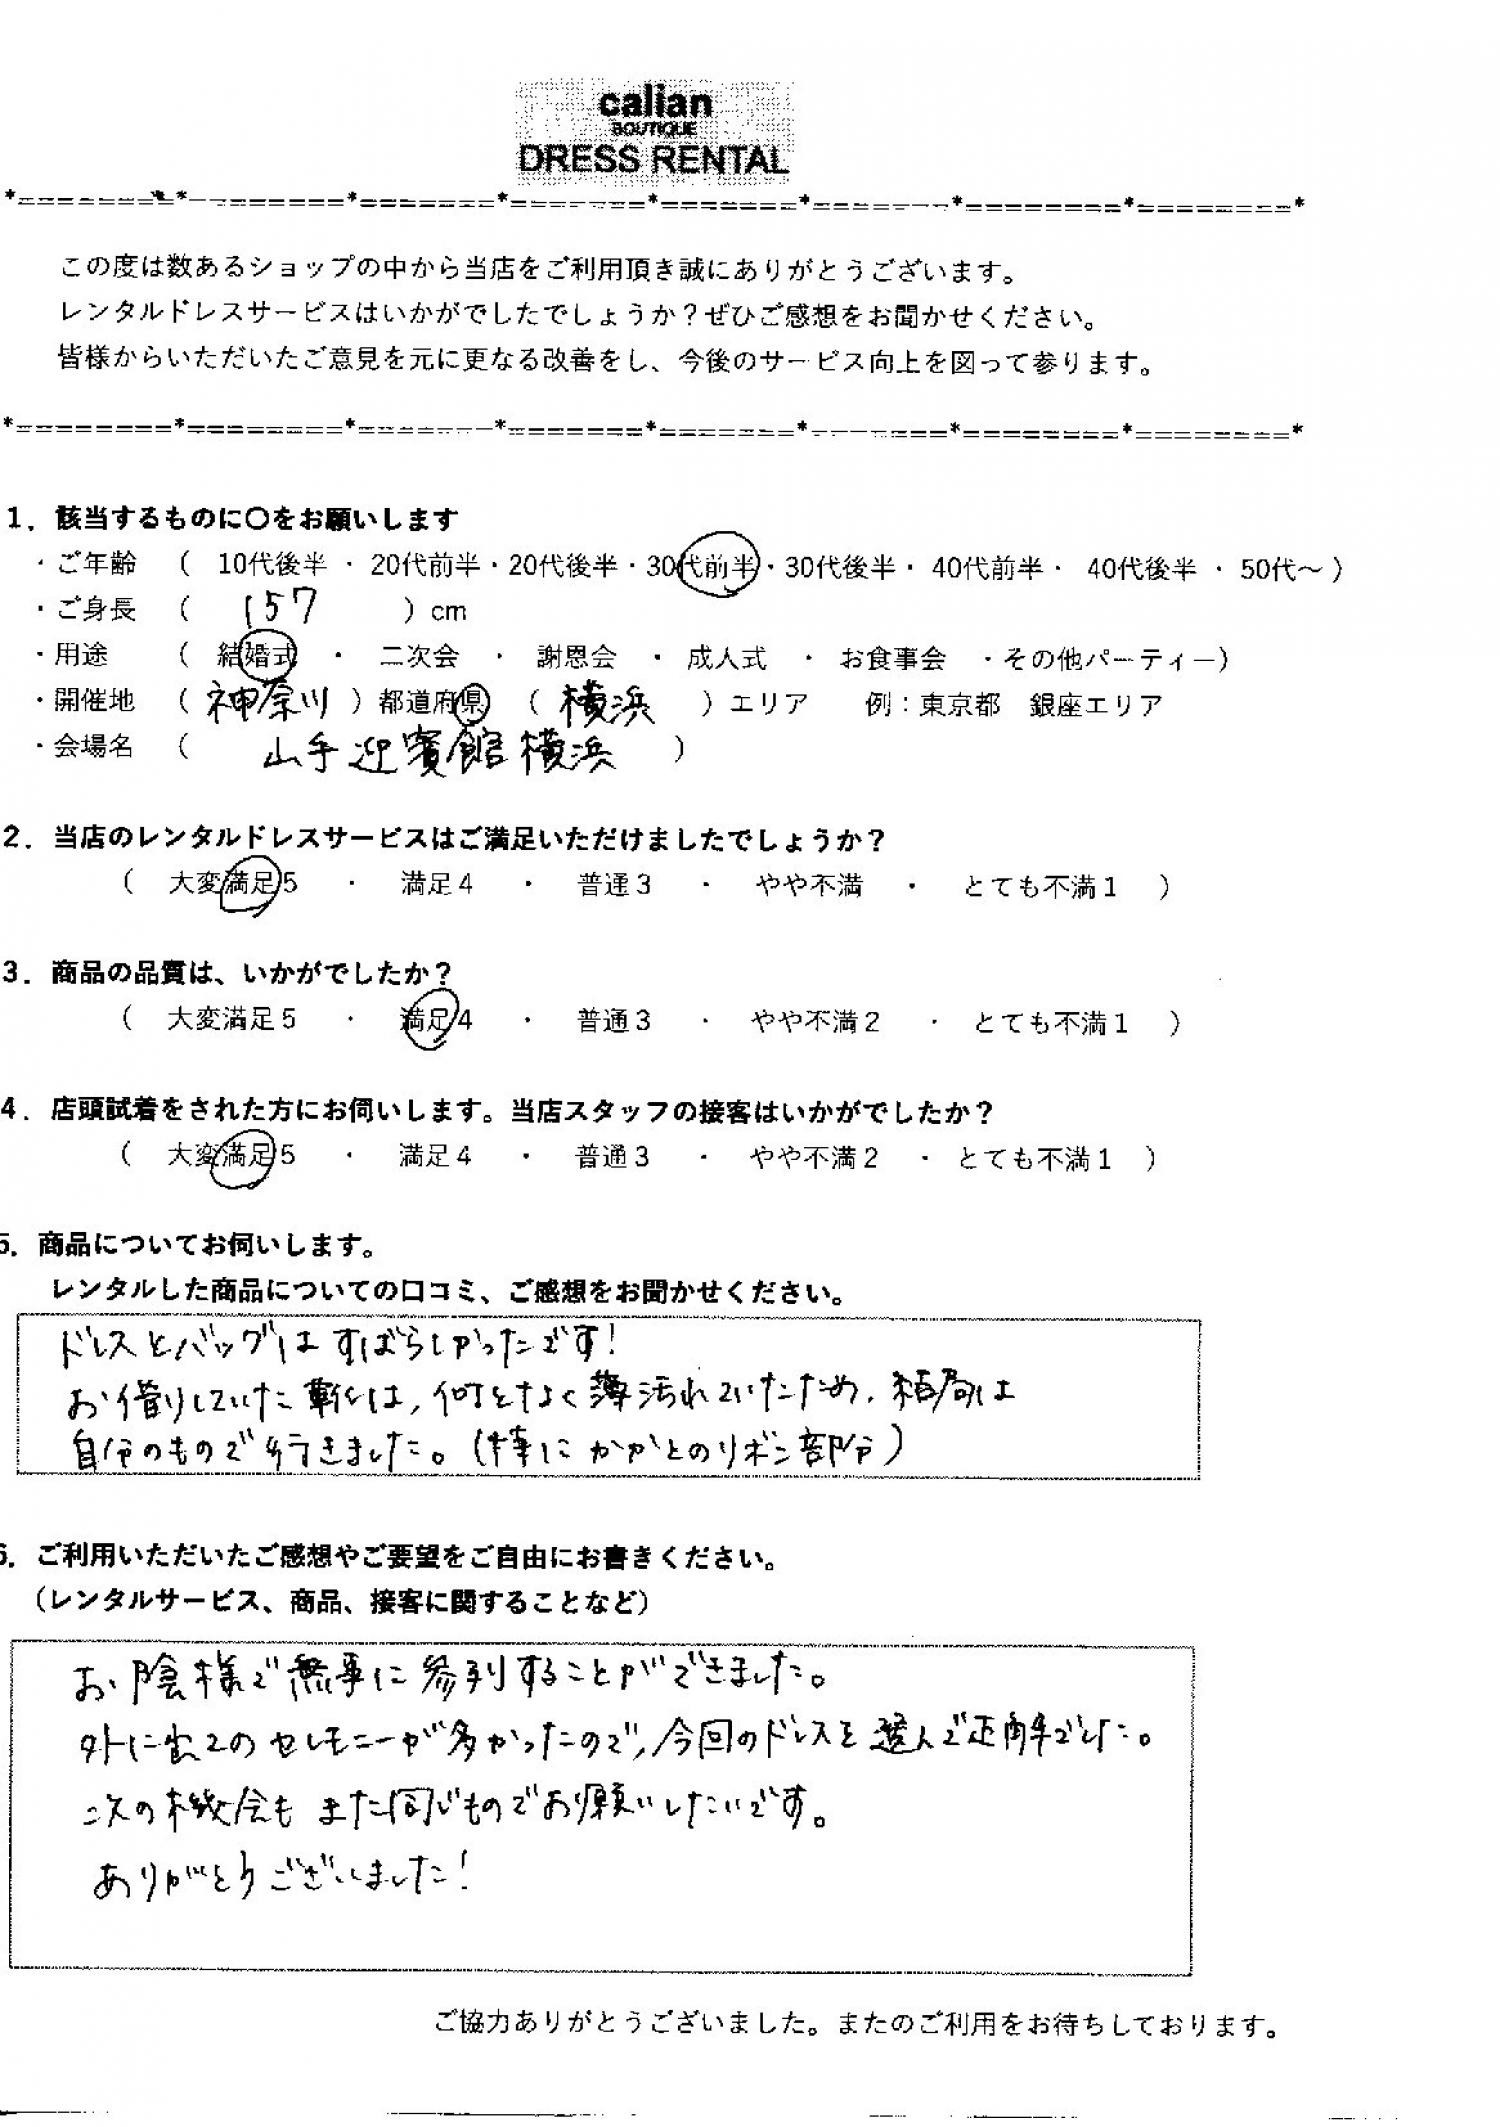 calian
BOUTIQUE
DRESS RENTAL
*========*========*=======*=======*=======*=======*========*========*
この度は数あるショップの中から当店をご利用頂き誠にありがとうございます。
レンタルドレスサービスはいかがでしたでしょうか？ぜひご感想をお聞かせください。
皆様からいただいたご意見を元に更なる改善をし、今後のサービス向上を図って参ります。
*========*========*=======*=======*=======*=======*========*========*
1．該当するものに〇をお願いします
・ご年齢　（　10代後半 ・ 20代前半・20代後半・30代前半・30代後半・ 40代前半・ 40代後半 ・ 50代～ ）
・ご身長　（　157　）cm
・用途　（　結婚式　・　二次会　・　謝恩会　・ 成人式　・ お食事会　・その他パーティー）
・開催地　（ 神奈川 ）都道府県　（ 横浜 ）エリア　例：東京都　銀座エリア
・会場名　（　山手迎賓館横浜　）
2．当店のレンタルドレスサービスはご満足いただけましたでしょうか？
（　大変満足５　・　満足４　・　普通３　・　やや不満　・　とても不満１　）
3．商品の品質は、いかがでしたか？
（　大変満足５　・　満足４　・　普通３　・　やや不満２　・　とても不満１　）
4．店頭試着をされた方にお伺いします。当店スタッフの接客はいかがでしたか？
（　大変満足５　・　満足４　・　普通３　・　やや不満２　・ とても不満１　）
5．商品についてお伺いします。
レンタルした商品についての口コミ、ご感想をお聞かせください。
ドレスとバッグはすばらしかったです！
お借りしていた靴は、何となく薄汚れていたため、結局は
自分のもので行きました。（特にかかとのリボン部分）
6．ご利用いただいたご感想やご要望をご自由にお書きください。
（レンタルサービス、商品、接客に関することなど）
お陰様で無事に参列することができました。
外に出てのセレモニーが多かったので、今回のドレスを選んで正解でした。
次の機会もまた同じものでお願いしたいです。
ありがとうございました！
ご協力ありがとうございました。またのご利用をお待ちしております。